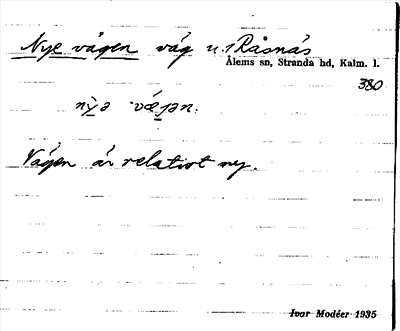 Nye vägen väg u. Råsnäs
Ålems sn, Stranda hd, Kalm. l.
380
nyə væjən.
Vägen är relativt ny.
Ivar Modéer 1935